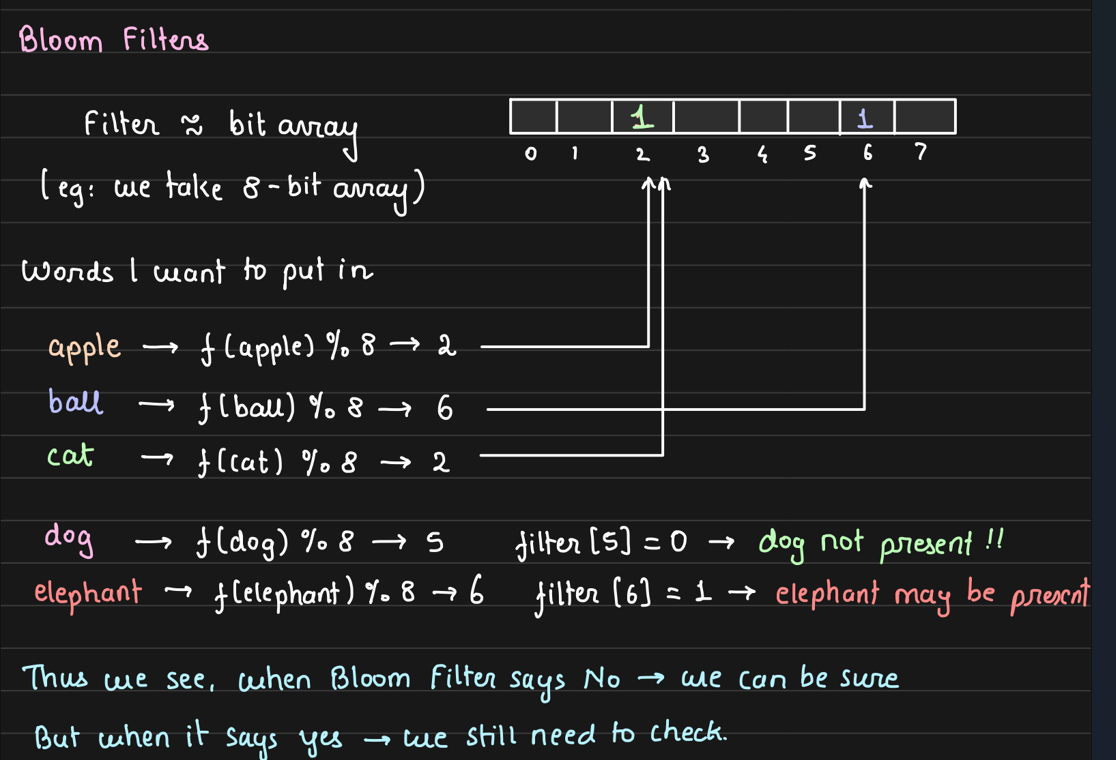 Bloom Filters
Filter ≈ bit array
1 1
0 1 2 3 4 5 6 7
(eg: we take 8-bit array)
Words I want to put in
apple → f(apple) % 8 → 2
ball → f(ball) % 8 → 6
cat → f(cat) % 8 → 2
dog → f(dog) % 8 → 5 filter [5] = 0 → dog not present !!
elephant → f(elephant) % 8 → 6 filter [6] = 1 → elephant may be present
Thus we see, when Bloom Filter says No → we can be sure
But when it says yes → we still need to check.